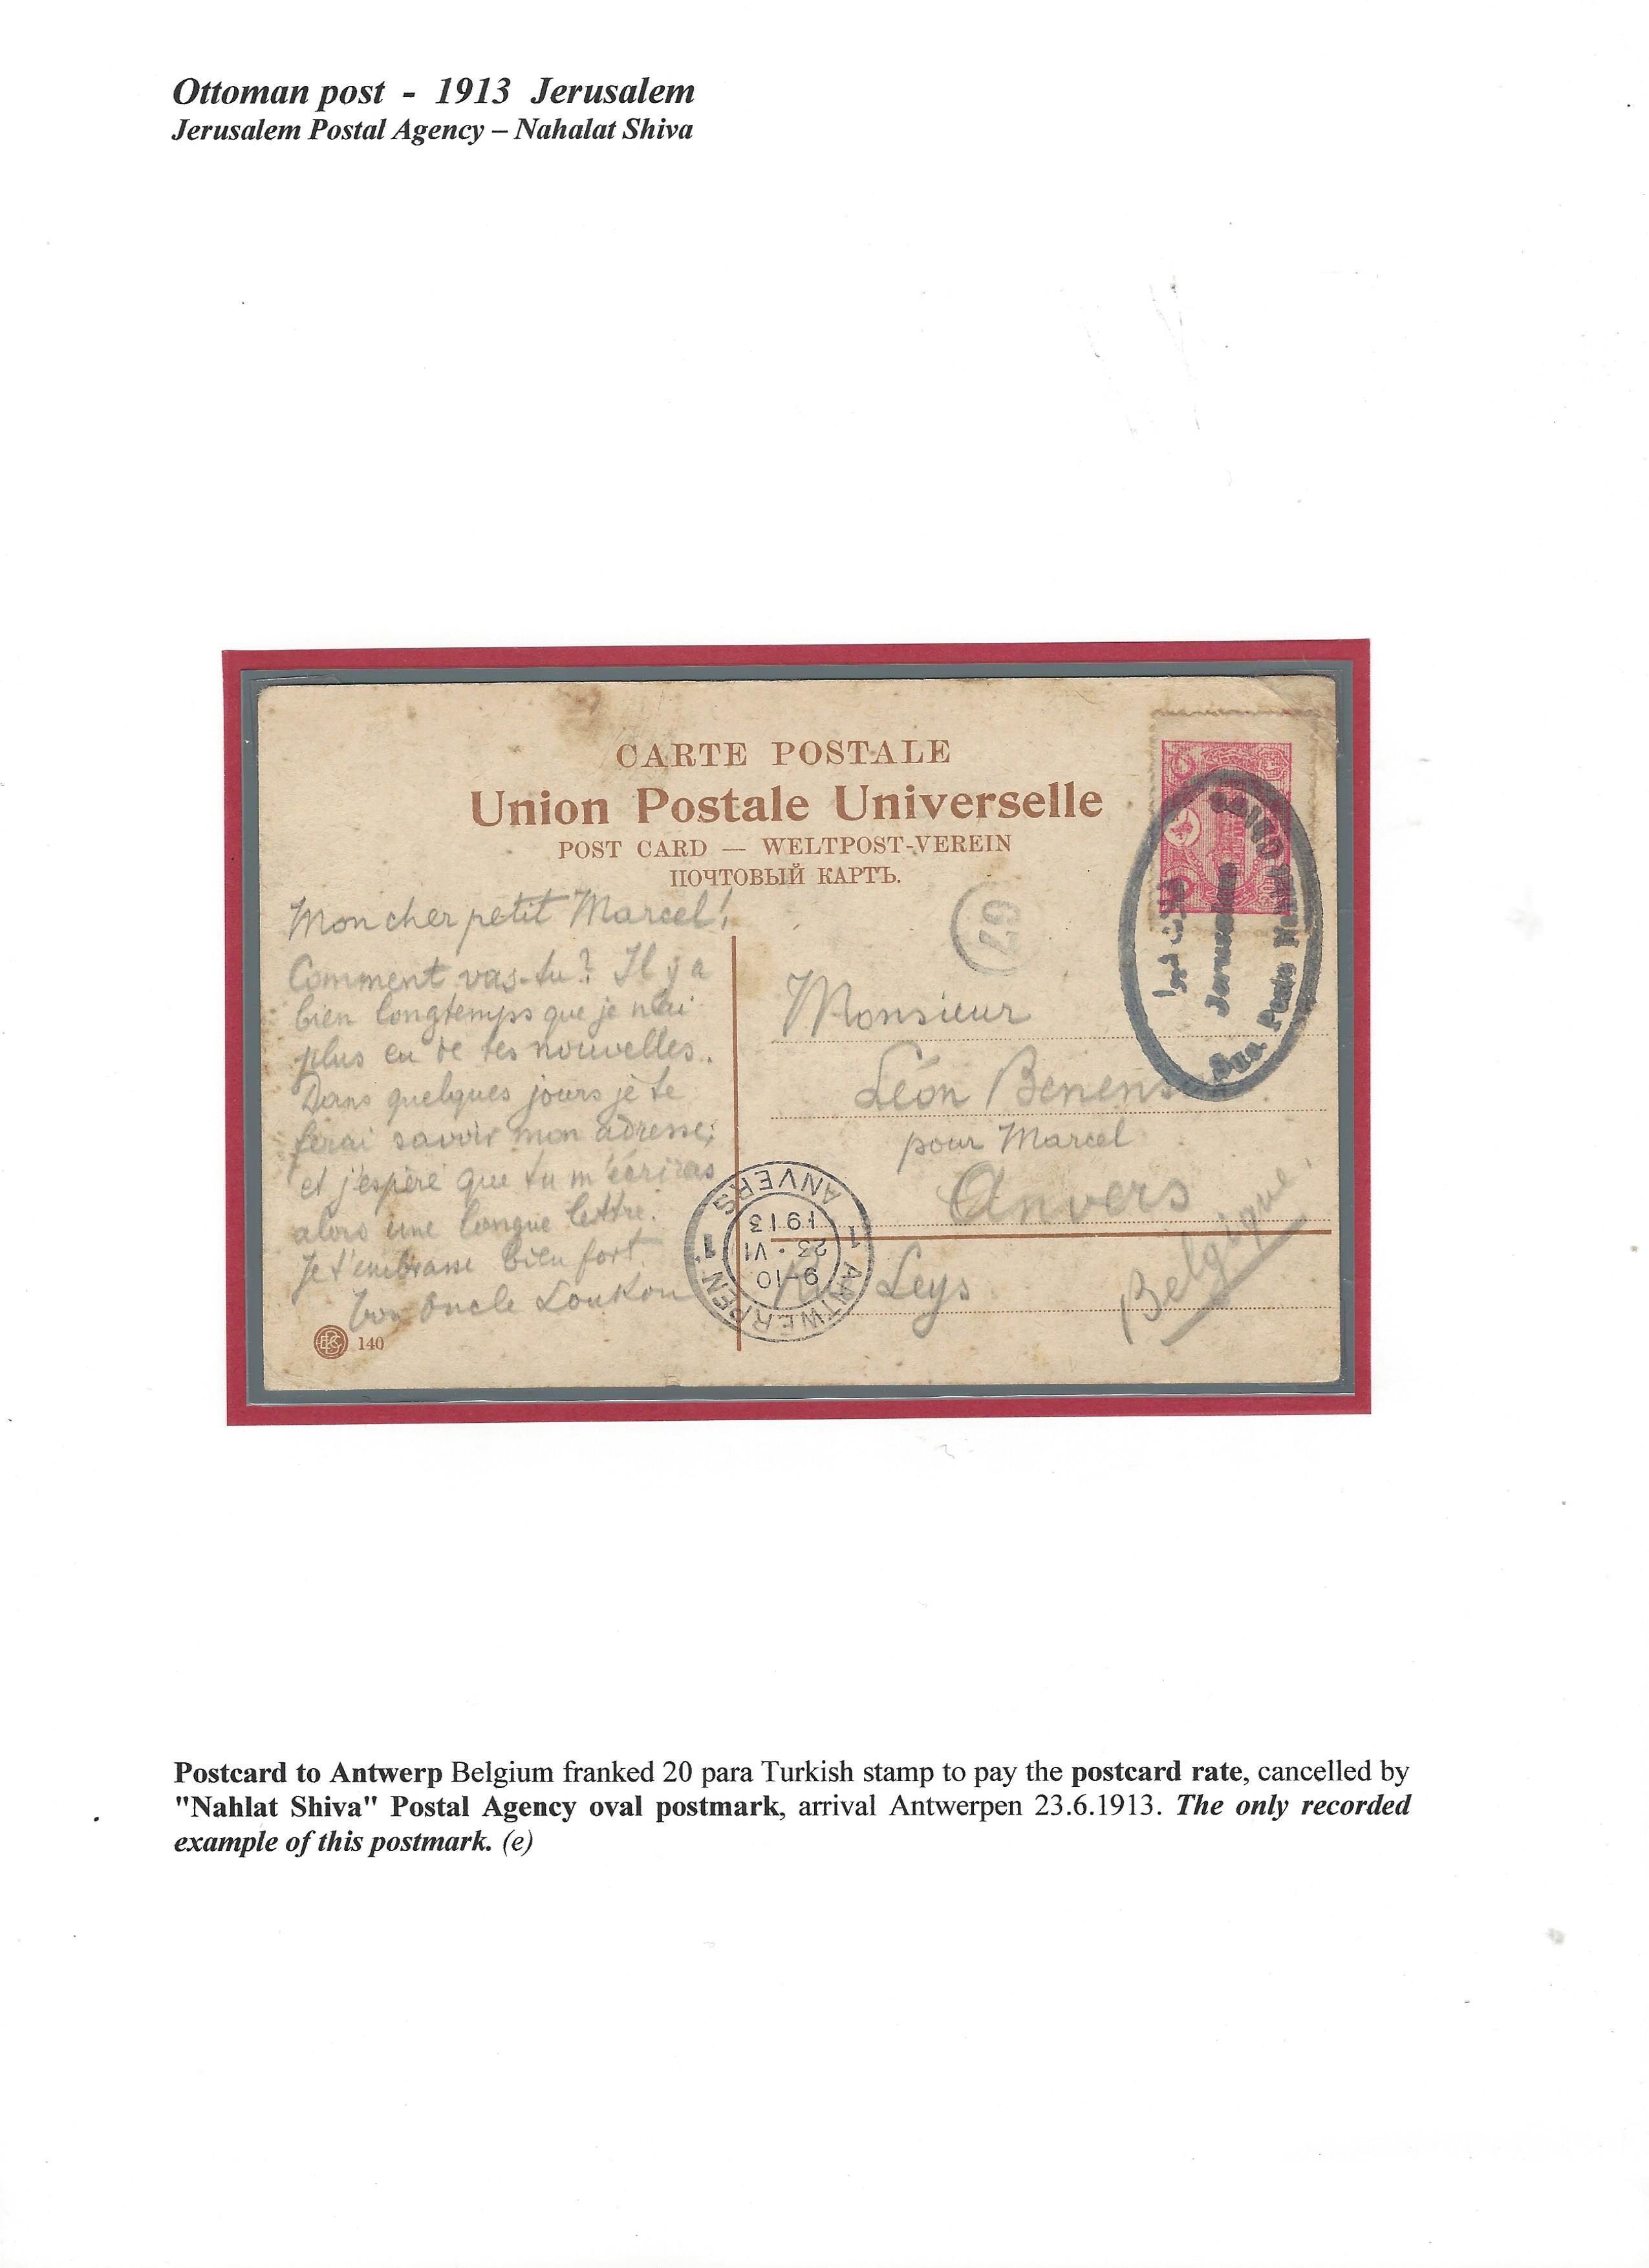 Ottoman post - 1913 Jerusalem
Jerusalem Postal Agency – Nahalat Shiva
CARTE POSTALE
Union Postale Universelle
POST CARD — WELTPOST-VEREIN
ПОЧТОВЫЙ КАРТЪ.
Mon cher petit Marcel!
Comment vas-tu? Il y a
bien longtemps que je n'ai
plus eu de tes nouvelles.
Dans quelques jours je te
ferai savoir mon adresse;
et j'espère que tu m'écriras
alors une longue lettre.
Je t'embrasse bien fort
Ton oncle
140
67
Monsieur
Léon
pour Marcel
Anvers
Rue Leys
Belgique.
Jerusalem
Poste
ANTWERPEN 1
9-10
23 · VI
1913
1 ANVERS
Postcard to Antwerp Belgium franked 20 para Turkish stamp to pay the postcard rate, cancelled by
"Nahlat Shiva" Postal Agency oval postmark, arrival Antwerpen 23.6.1913. The only recorded
example of this postmark. (e)